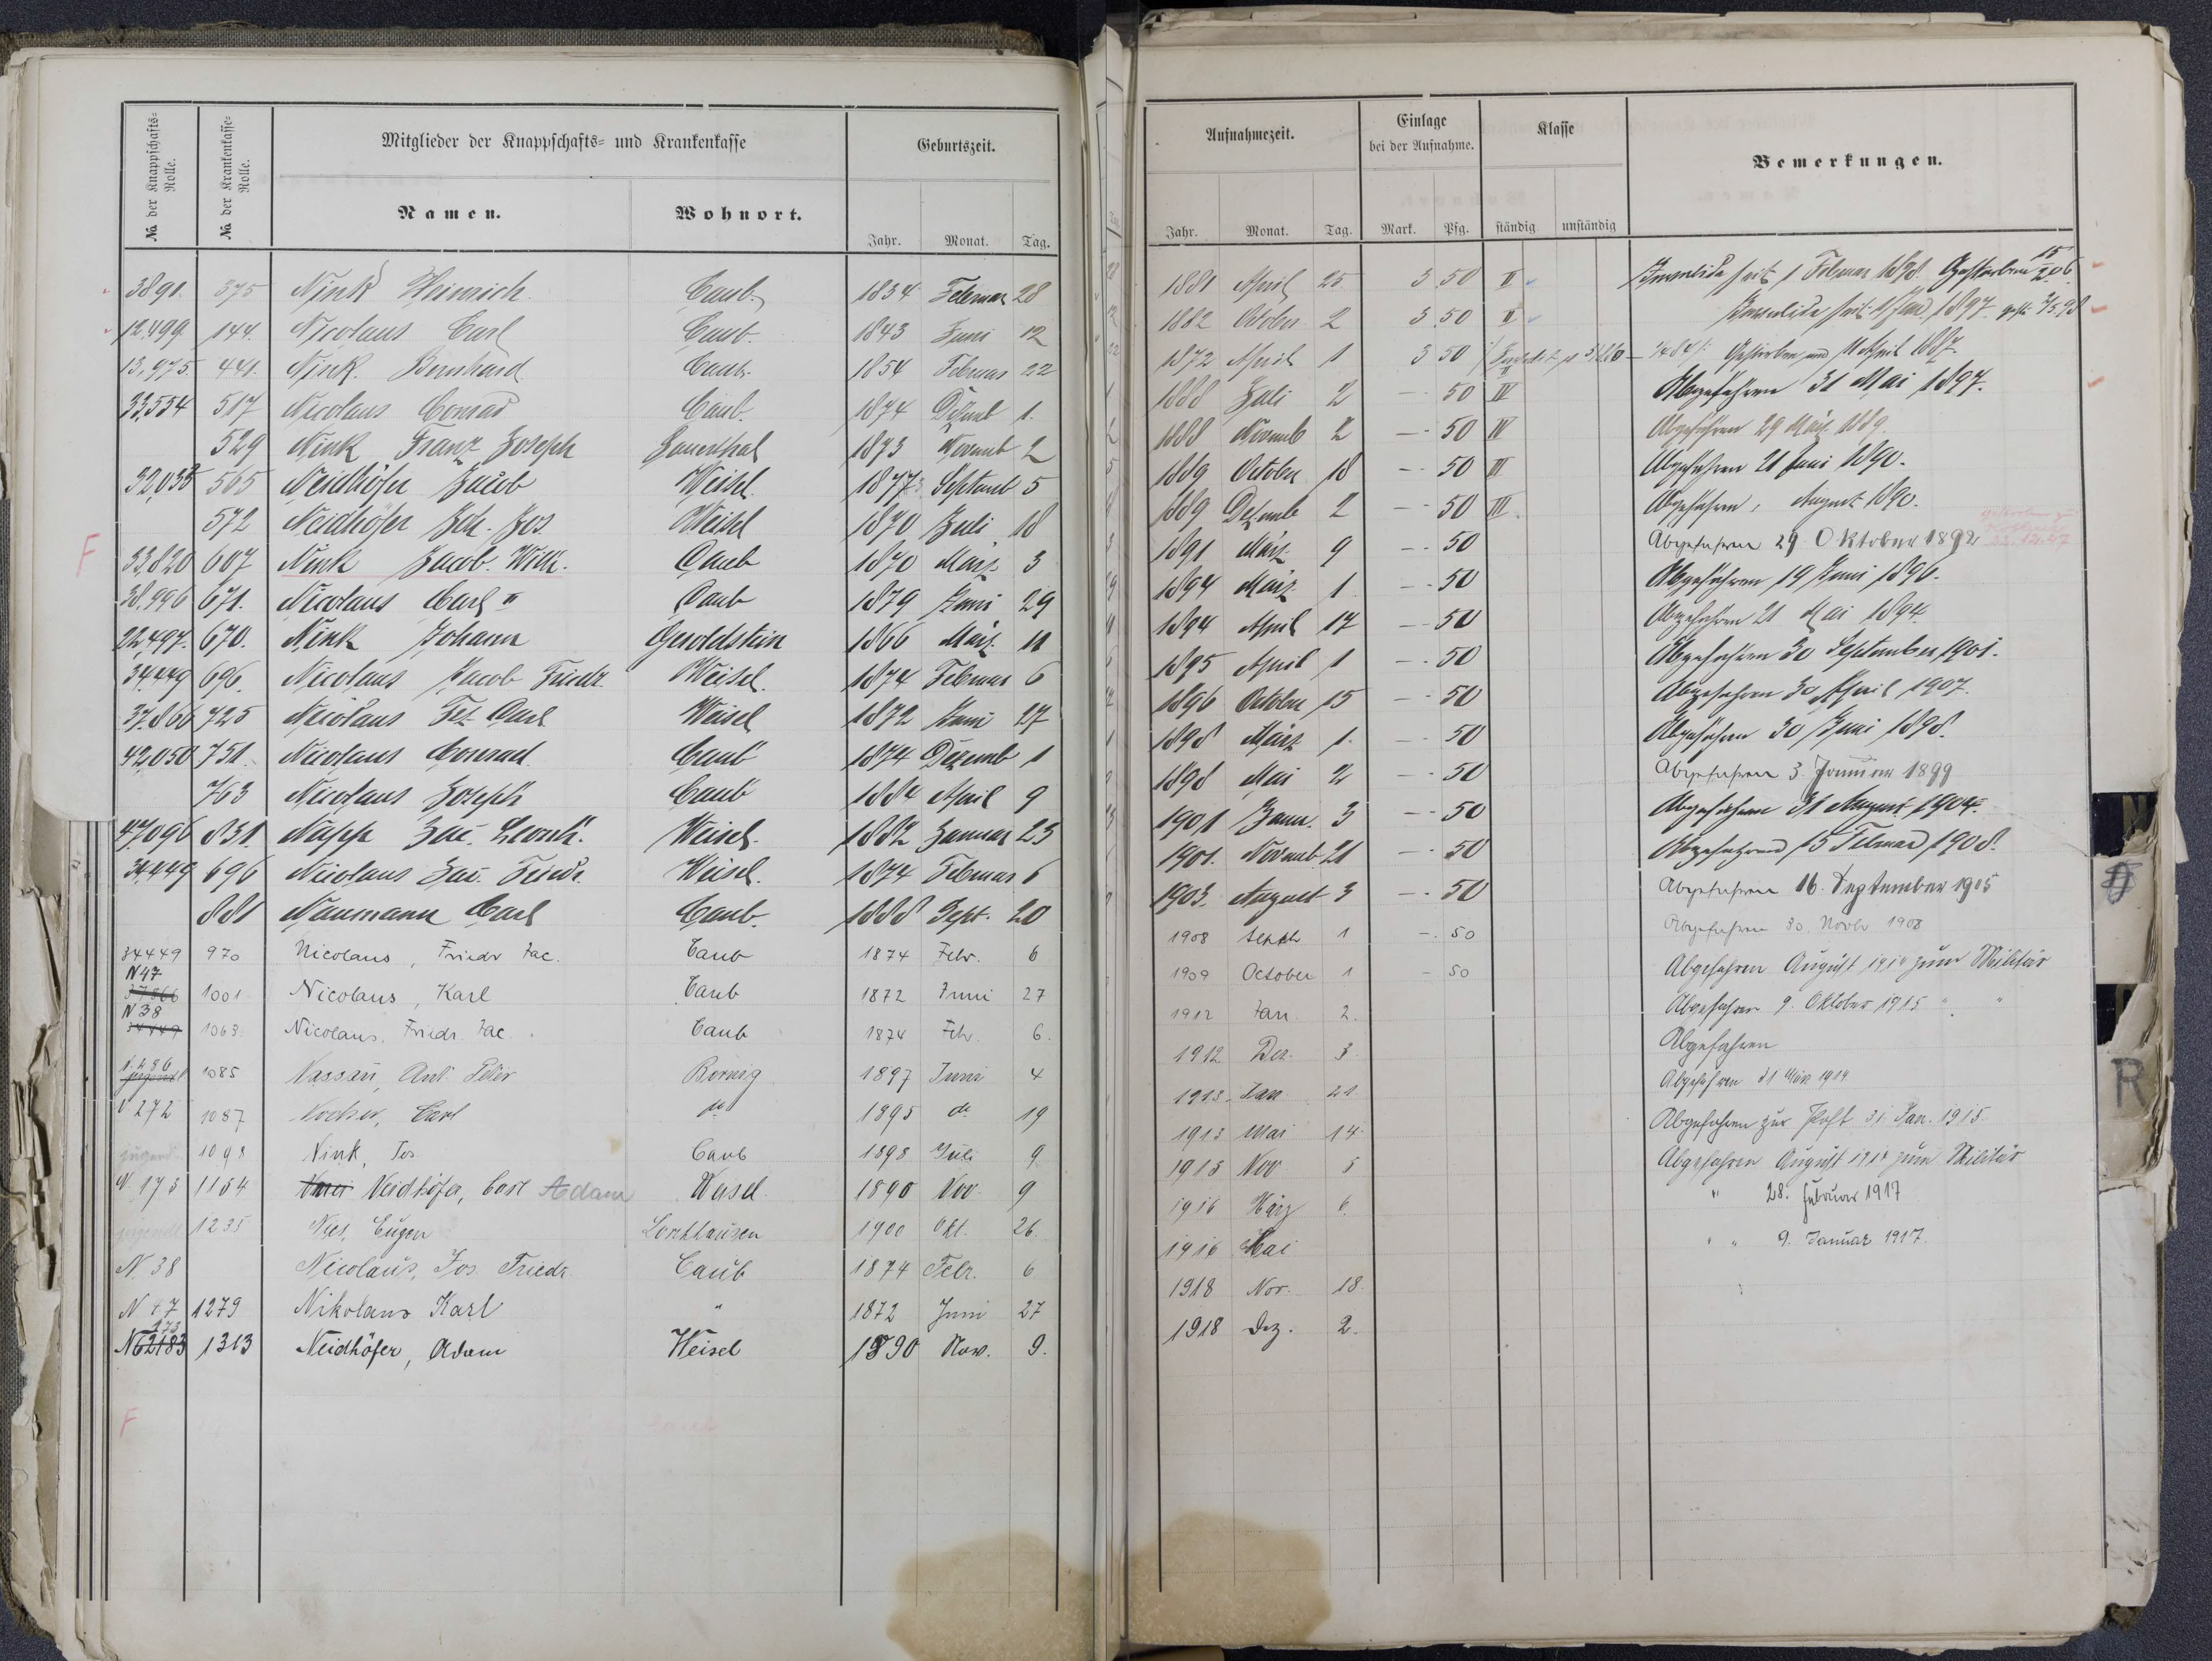 No der Knappschafts-Rolle.
No der Krankenkasse-Rolle.
Mitglieder der Knappschafts- und Krankenkasse
Geburtszeit.
Namen.
Wohnort.
Jahr. Monat. Tag.
3891. 375 Nink Heinrich Caub. 1834 Februar 28
12,499 144. Nicolaus Carl Caub. 1843 Juni 12
13,975. 441. Nink. Bernhard Caub. 1854 Februar 22
33,554 517 Nicolaus Conrad Caub. 1874 Dezemb 1.
529 Nink Franz Joseph Sauerthal 1873 Novemb 2
32,035 565 Neidhöfer Jacob Weisel. 1847 Septemb 5
572 Neidhöfer Joh. Jos. Weisel 1870 Juli 18
F
33,820 607 Nink Jacob. Wilh. Caub 1870 März 3
38,996 671. Nicolaus Carl II Caub 1879 Juni 29
22,497. 670. Nink Johann Geroldstein 1866 März. 11
34449 696. Nicolaus Jacob Friedr. Weisel. 1874 Februar 6
37.866 725 Nicolaus Carl Weisel 1872 Juni 27
42,050 751. Nicolaus Conrad Caub 1874 Dezemb 1
763 Nicolaus Joseph Caub 1884 April 9
47096 831. Napp Jac. Leonh. Weisel. 1882 Januar 23
34,449 696 Nicolaus Jac. Friedr. Weisel. 1874 Februar 6
881 Naumann Carl Caub. 1888 Sept. 20
34449 970 Nicolaus, Friedr Jac. Caub 1874 Febr. 6
N 47
37866 1001 Nicolaus, Karl Caub 1872 Juni 27
N 38
34449 1063. Nicolaus. Friedr. Jac. Caub 1874 Febr. 6.
jugendl 1085 Nassau, Ant. Peter Bornig 1897 Juni 4
N 272 1087 Nocher, Carl do 1895 do 19
jugendl. 1098 Nink, Jos. Caub 1898 Juli 9
N 173 1164 Neidhöfer, Carl Adam Weisel 1890 Nov. 9
jugendl 1235 Nies, Eugen Lorchhausen 1900 Okt. 26.
N 38 Nicolaus, Jos. Friedr. Caub 1874 Febr. 6
N 47 1279 Nikolaus Karl " 1872 Juni 27
173
N62183 1313 Neidhöfer, Adam Weisel 1890 Nov. 9.
F
Aufnahmezeit.
Einlage bei der Aufnahme.
Klasse
Bemerkungen.
Jahr. Monat. Tag. Mark. Pfg. ständig unständig
1881 April 25 3 50 II Invalide seit 1 Februar 1898. Gestorben 15/2 06.
1882 October 2 3 50 II Invalide seit 1 1897.
1872 April 1 3 50 Gestorben am 11 April 1887.
1888 Juli 2 — 50 IV Abgefahren 31 Mai 1897.
1888 Novemb 2 — 50 IV Abgefahren 29 März 1889.
1889 October 18 — 50 III Abgefahren 21 Juni 1890.
1889 Dezemb 2 — 50 III. Abgefahren, August 1890.
1891 März 9 — 50 Abgefahren 29 Oktober 1892
1894 März 1 — 50 Abgefahren 19 Juni 1896.
1894 April 17 — 50 Abgefahren 21 Mai 1894.
1895 April 1 — 50 Abgefahren 30 September 1901.
1896 October 15 — 50 Abgefahren 30 April 1907.
1898 März 1. — 50 Abgefahren 30 Juni 1898.
1898 Mai 2 — 50 Abgefahren 3. Januar 1899
1901 Janu. 3 — 50 Abgefahren 31 August 1904.
1901. Novemb 21 — 50 Abgefahren 15 Februar 1908.
1903. August 3 — 50 Abgefahren 16. September 1905
1908 Septb 1 — 50 Abgefahren 30. Novbr 1908
1909 October 1 — 50 Abgefahren August 1914 zum Militär
1912 Jan. 2. Abgefahren 9. Oktober 1915 " "
1912 Dez. 3 Abgefahren
1913. Jan 21 Abgefahren 31 März 1914
1913 Mai 14 Abgefahren zur Post 31. Jan. 1915
1913 Nov 5 Abgefahren August 1914 zum Militär
1916 März 6. " 28. Februar 1917
1916 Mai " " 9. Januar 1917.
1918 Nov. 18.
1918 Dez. 2.
R